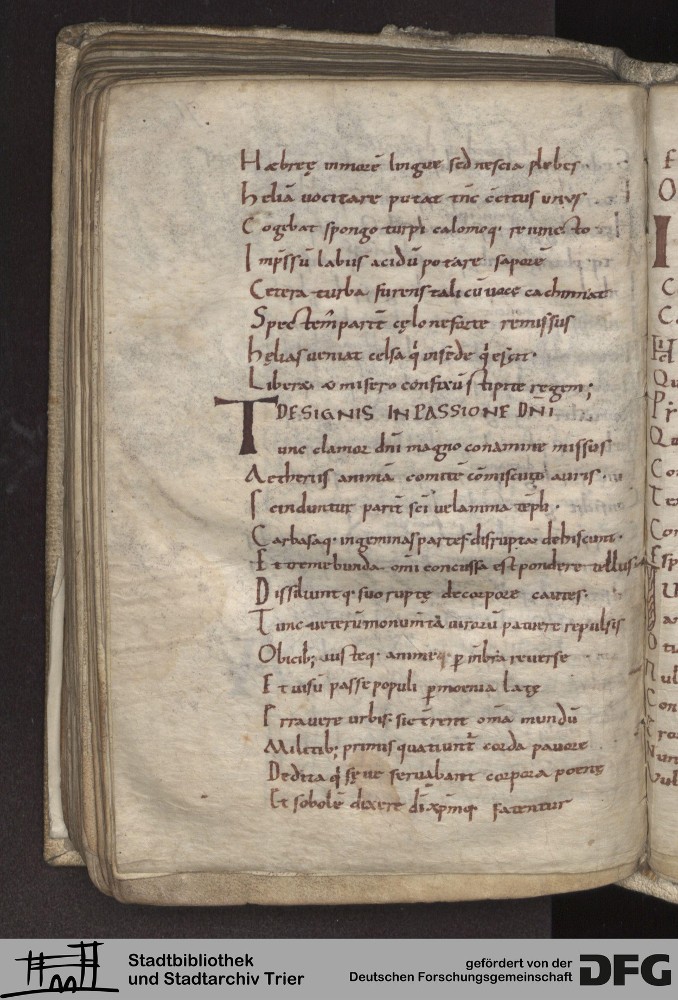 Hæbreę inmorē lingue sed nescia plebes.
heliā uocitare putat tn̄c c̄citus unus
Cogebat spongo turpi calomoq. reuincto
Imp̄ssū labiis acidū potare saporē
Cetera turba furens tali cū uoce cachinnat
Spectem̄ part̄ cęlo ne forte remissus
helias ueniat celsa
misero confixū stipite regem;
DESIGNIS INPASSIONE DN̄I
Tunc clamor dn̄i magno conamine missus
Aetheriis animā comitē cōmiscuit auris.
Scinduntur parit̄ sc̄i uelamina tēpli.
Carbasaq. ingeminas partes disrupta dehiscunt.
Et tremebunda om̄i concussa est pondere tellus.
Dissiliuntq. suo ruptę decorpore cautes.
Tunc ueterū monumta uirorū patuere repulsis
Obicib; iusteq. animeq. p mbra reuerse
Et uisū passe populi pmoenia latę
Errauere urbis. sic trent om̄a mundū
Militib; primis quatiunt̄ corda pauore
Dedita seruabant corpora poenę
Et sobolē dixere dī xp̄mq. fatentur
Stadtbibliothek
und Stadtarchiv Trier
gefördert von der
Deutschen Forschungsgemeinschaft
DFG